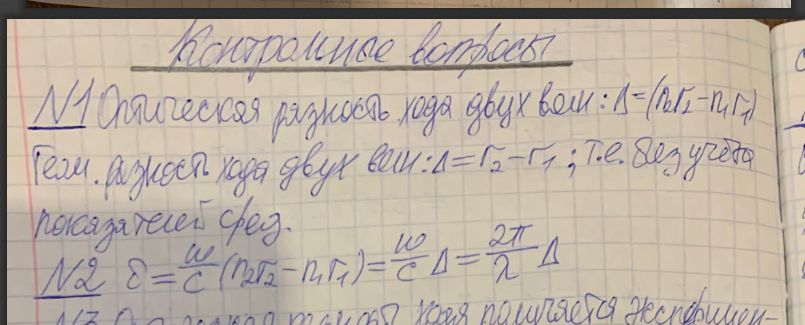 Контрольные вопросы
N1 Оптическая разность хода двух волн: Δ=(n₂r₂-n₁r₁)
Геом. разность хода двух волн: Δ=r₂-r₁; т.е. без учёта
показателей сред.
N2 δ = ω/c (n₂r₂-n₁r₁) = ω/c Δ = 2π/λ Δ
N3 хода получается эксперимен-